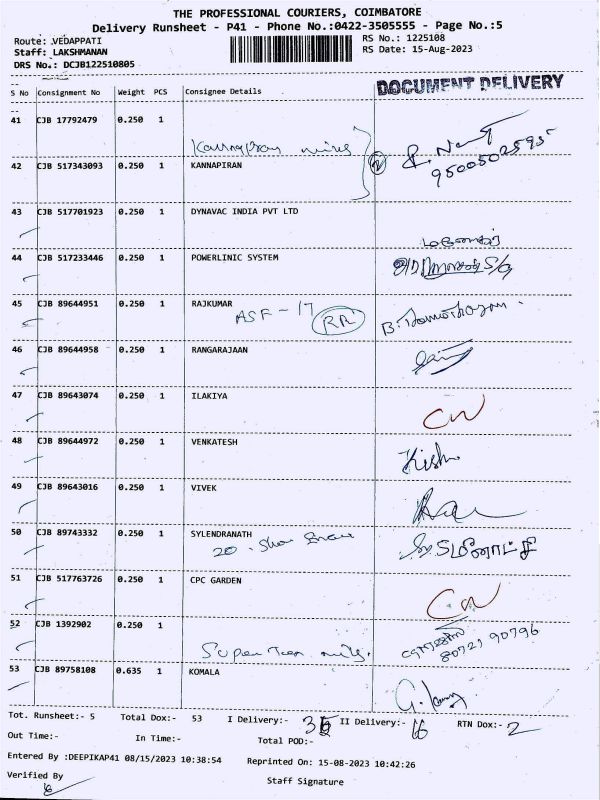 THE PROFESSIONAL COURIERS, COIMBATORE
Delivery Runsheet - P41 - Phone No.:0422-3505555 - Page No.:5
Route: .VEDAPPATI RS No.: 1225108
Staff: LAKSHMANAN RS Date: 15-Aug-2023
DRS No.: DCJB122510805
DOCUMENT DELIVERY
S No Consignment No Weight PCS Consignee Details
41 CJB 17792479 0.250 1
42 CJB 517343093 0.250 1 KANNAPIRAN
2
9500502595
43 CJB 517701923 0.250 1 DYNAVAC INDIA PVT LTD
44 CJB 517233446 0.250 1 POWERLINIC SYSTEM
45 CJB 89644951 0.250 1 RAJKUMAR
ASF - 17 RR
46 CJB 89644958 0.250 1 RANGARAJAAN
47 CJB 89643074 0.250 1 ILAKIYA
CW
48 CJB 89644972 0.250 1 VENKATESH
49 CJB 89643016 0.250 1 VIVEK
50 CJB 89743332 0.250 1 SYLENDRANATH
20
51 CJB 517763726 0.250 1 CPC GARDEN
CW
52 CJB 1392902 0.250 1
80721 90796
53 CJB 89758108 0.635 1 KOMALA
Tot. Runsheet:- 5 Total Dox:- 53 I Delivery:- II Delivery:- 16 RTN Dox:- 2
Out Time:- In Time:- Total POD:-
Entered By :DEEPIKAP41 08/15/2023 10:38:54 Reprinted On: 15-08-2023 10:42:26
Verified By Staff Signature